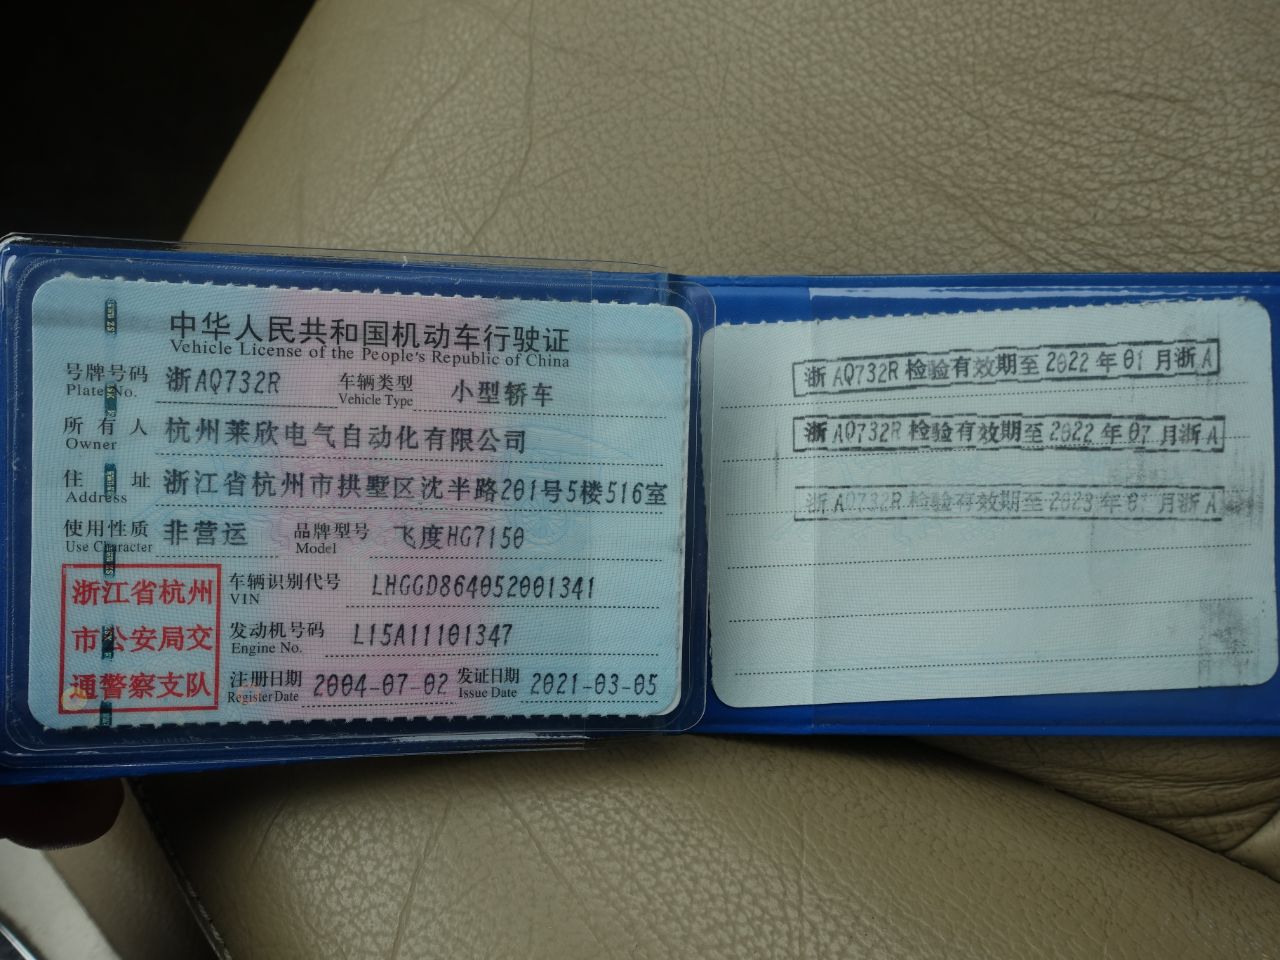 中华人民共和国机动车行驶证
Vehicle License of the People's Republic of China
号牌号码 浙AQ732R 车辆类型 小型轿车
Plate No. Vehicle Type
所有人 杭州莱欣电气自动化有限公司
Owner
住址 浙江省杭州市拱墅区沈半路201号5楼516室
Address
使用性质 非营运 品牌型号 飞度HG7150
Use Character Model
浙江省杭州
市公安局交
通警察支队
车辆识别代号 LHGGD864052001341
VIN
发动机号码 L15A11101347
Engine No.
注册日期 2004-07-02 发证日期 2021-03-05
Register Date Issue Date
浙AQ732R检验有效期至2022年01月浙A
浙AQ732R检验有效期至2022年07月浙A
浙AQ732R检验有效期至2023年01月浙A